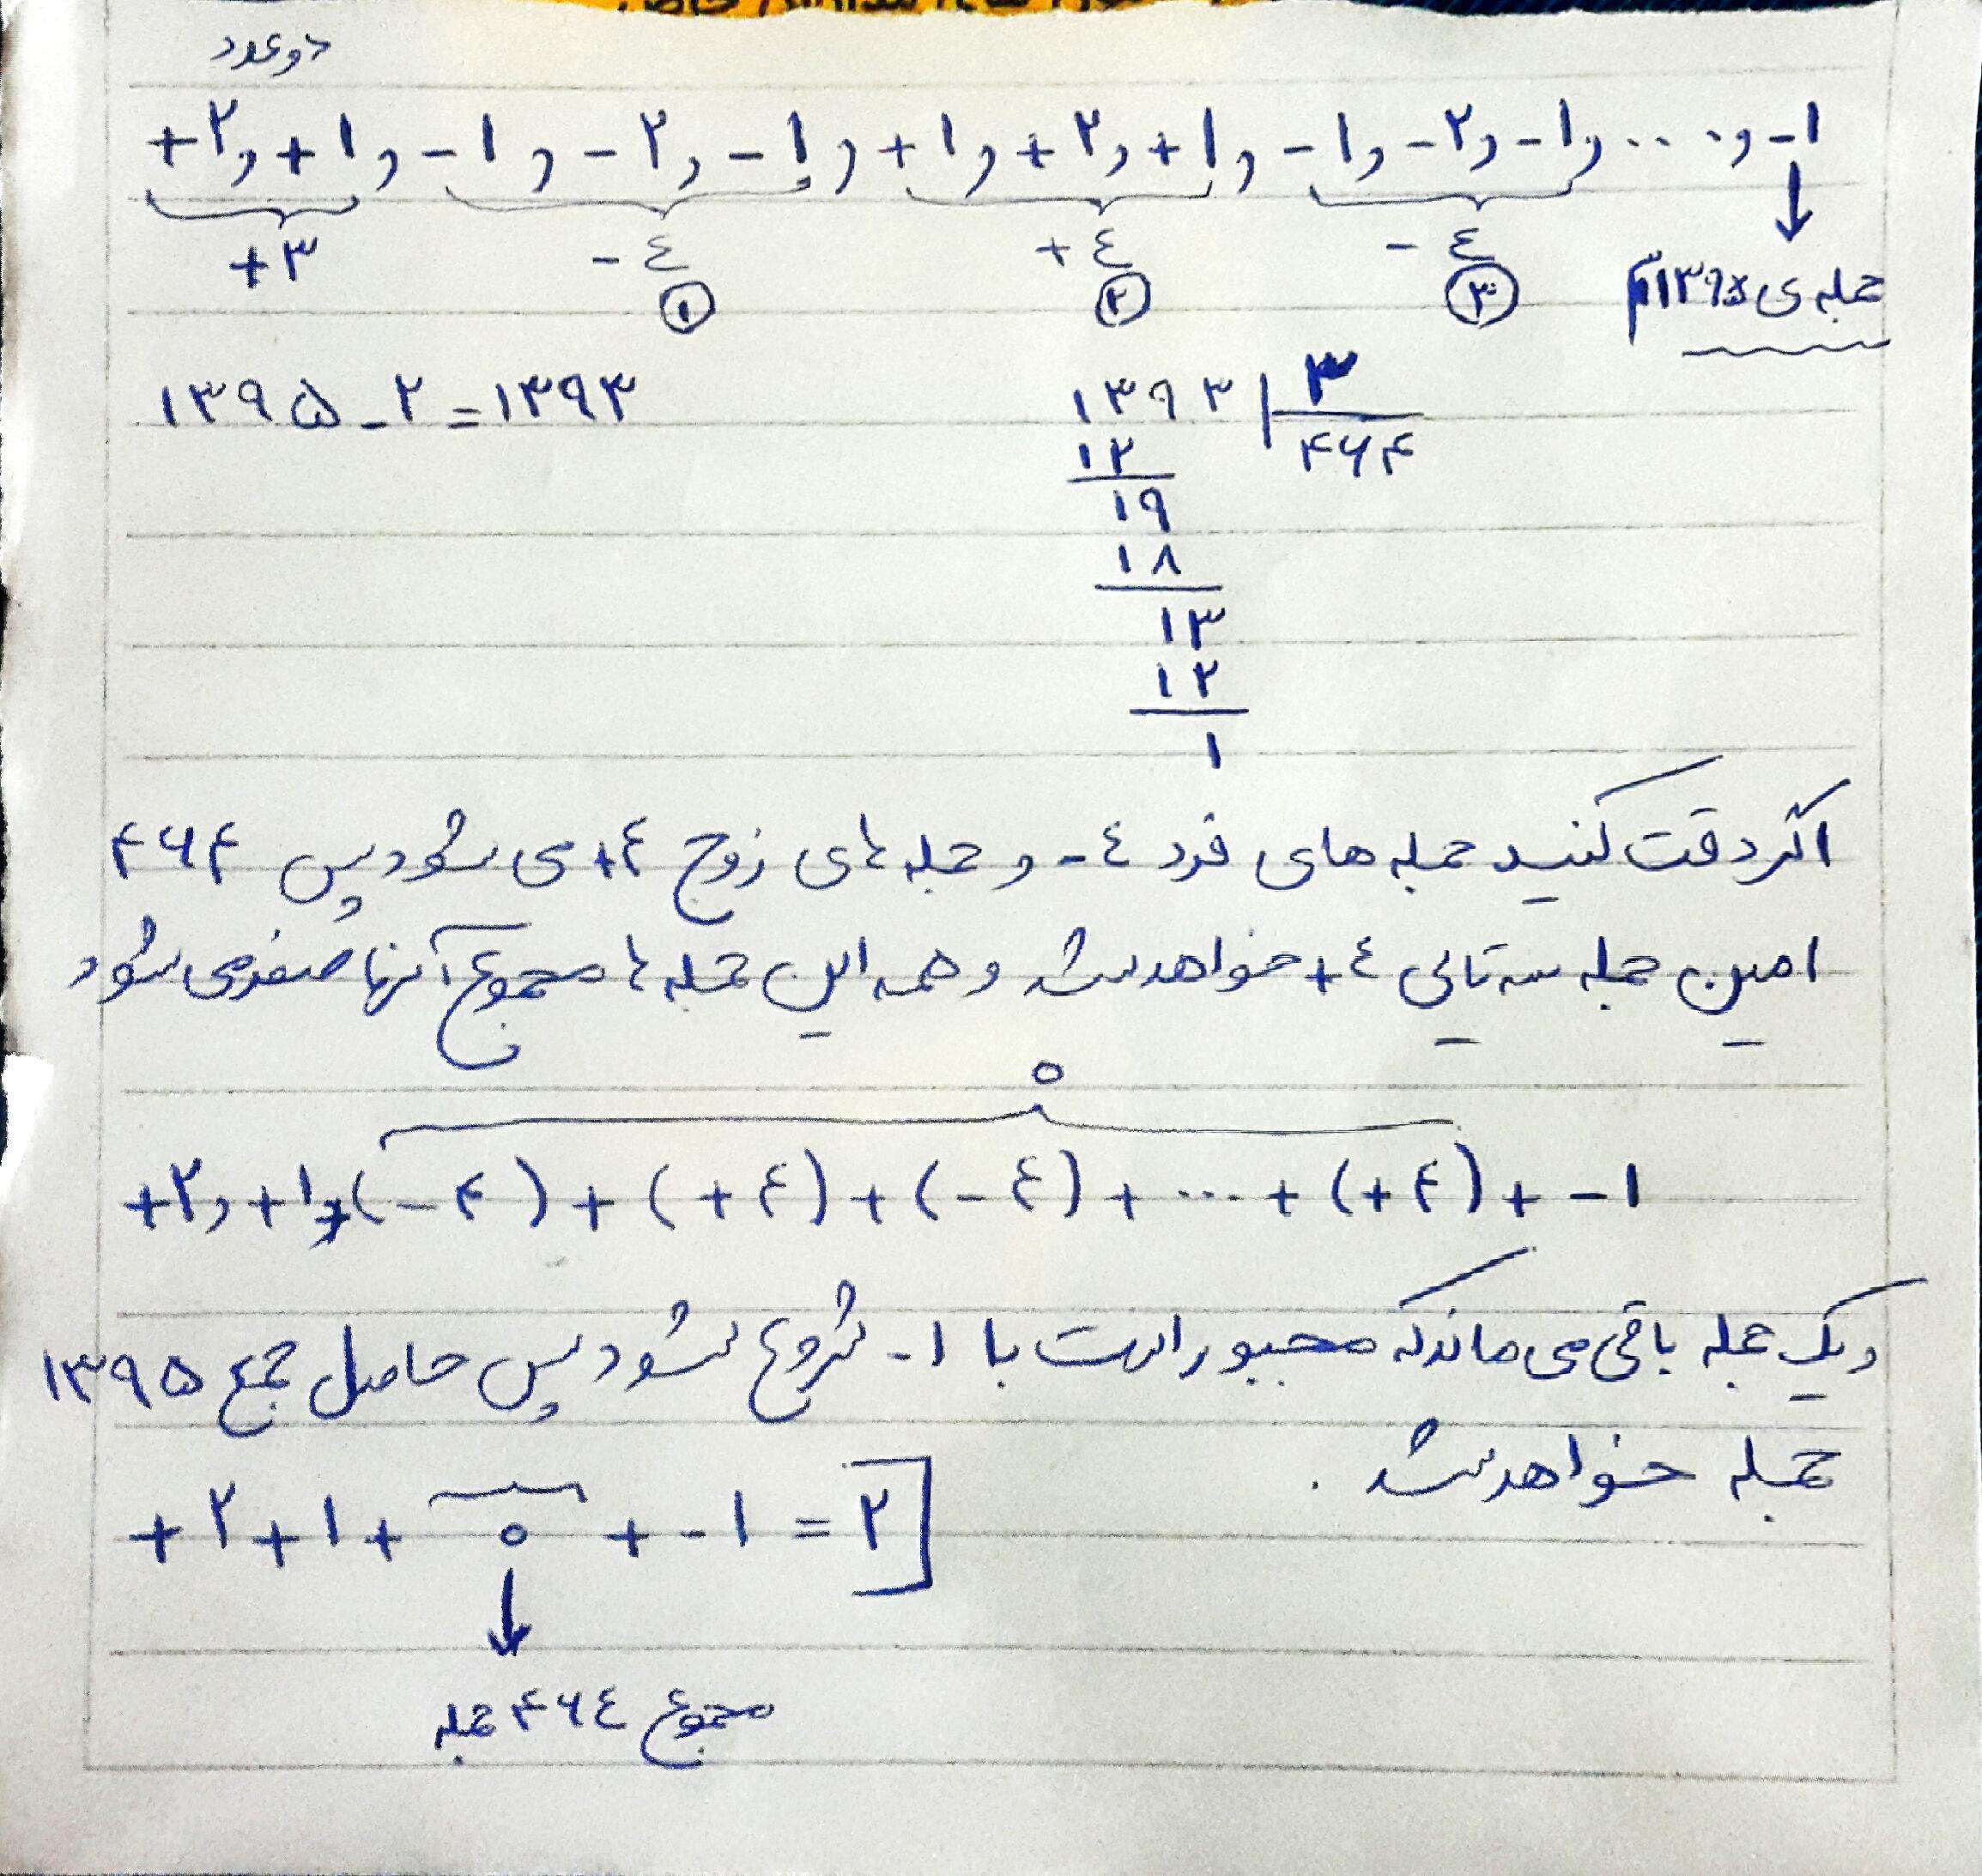 دو عدد
+۲, +۱, -۱, -۲, -۱, +۱, +۲, +۱, -۱, -۲, -۱, ..., -۱
+۳ -٤ +٤ -٤
۱ ۲ ۳ جمله ی ۱۳۹۵اُم
۱۳۹۵ - ۲ = ۱۳۹۳
۱۳۹۳ | ۳
۱۲ ۴۶۴
۱۹
۱۸
۱۳
۱۲
۱
اگر دقت کنید جمله های فرد ٤- و جمله های زوج ٤+ می شود پس ۴۶۴
امین جمله سه تایی ٤+ خواهد شد و همه این جمله ها مجموع آنها صفر می شود
۰
+۲, +۱, + (-۴) + (+٤) + (-٤) + ... + (+۴) + -۱
و یک جمله باقی می ماند که مجبور است با ۱- شروع شود پس حاصل جمع ۱۳۹۵
جمله خواهد شد.
+۲ +۱ + ۰ + -۱ = ۲
مجموع ۴۶٤ جمله